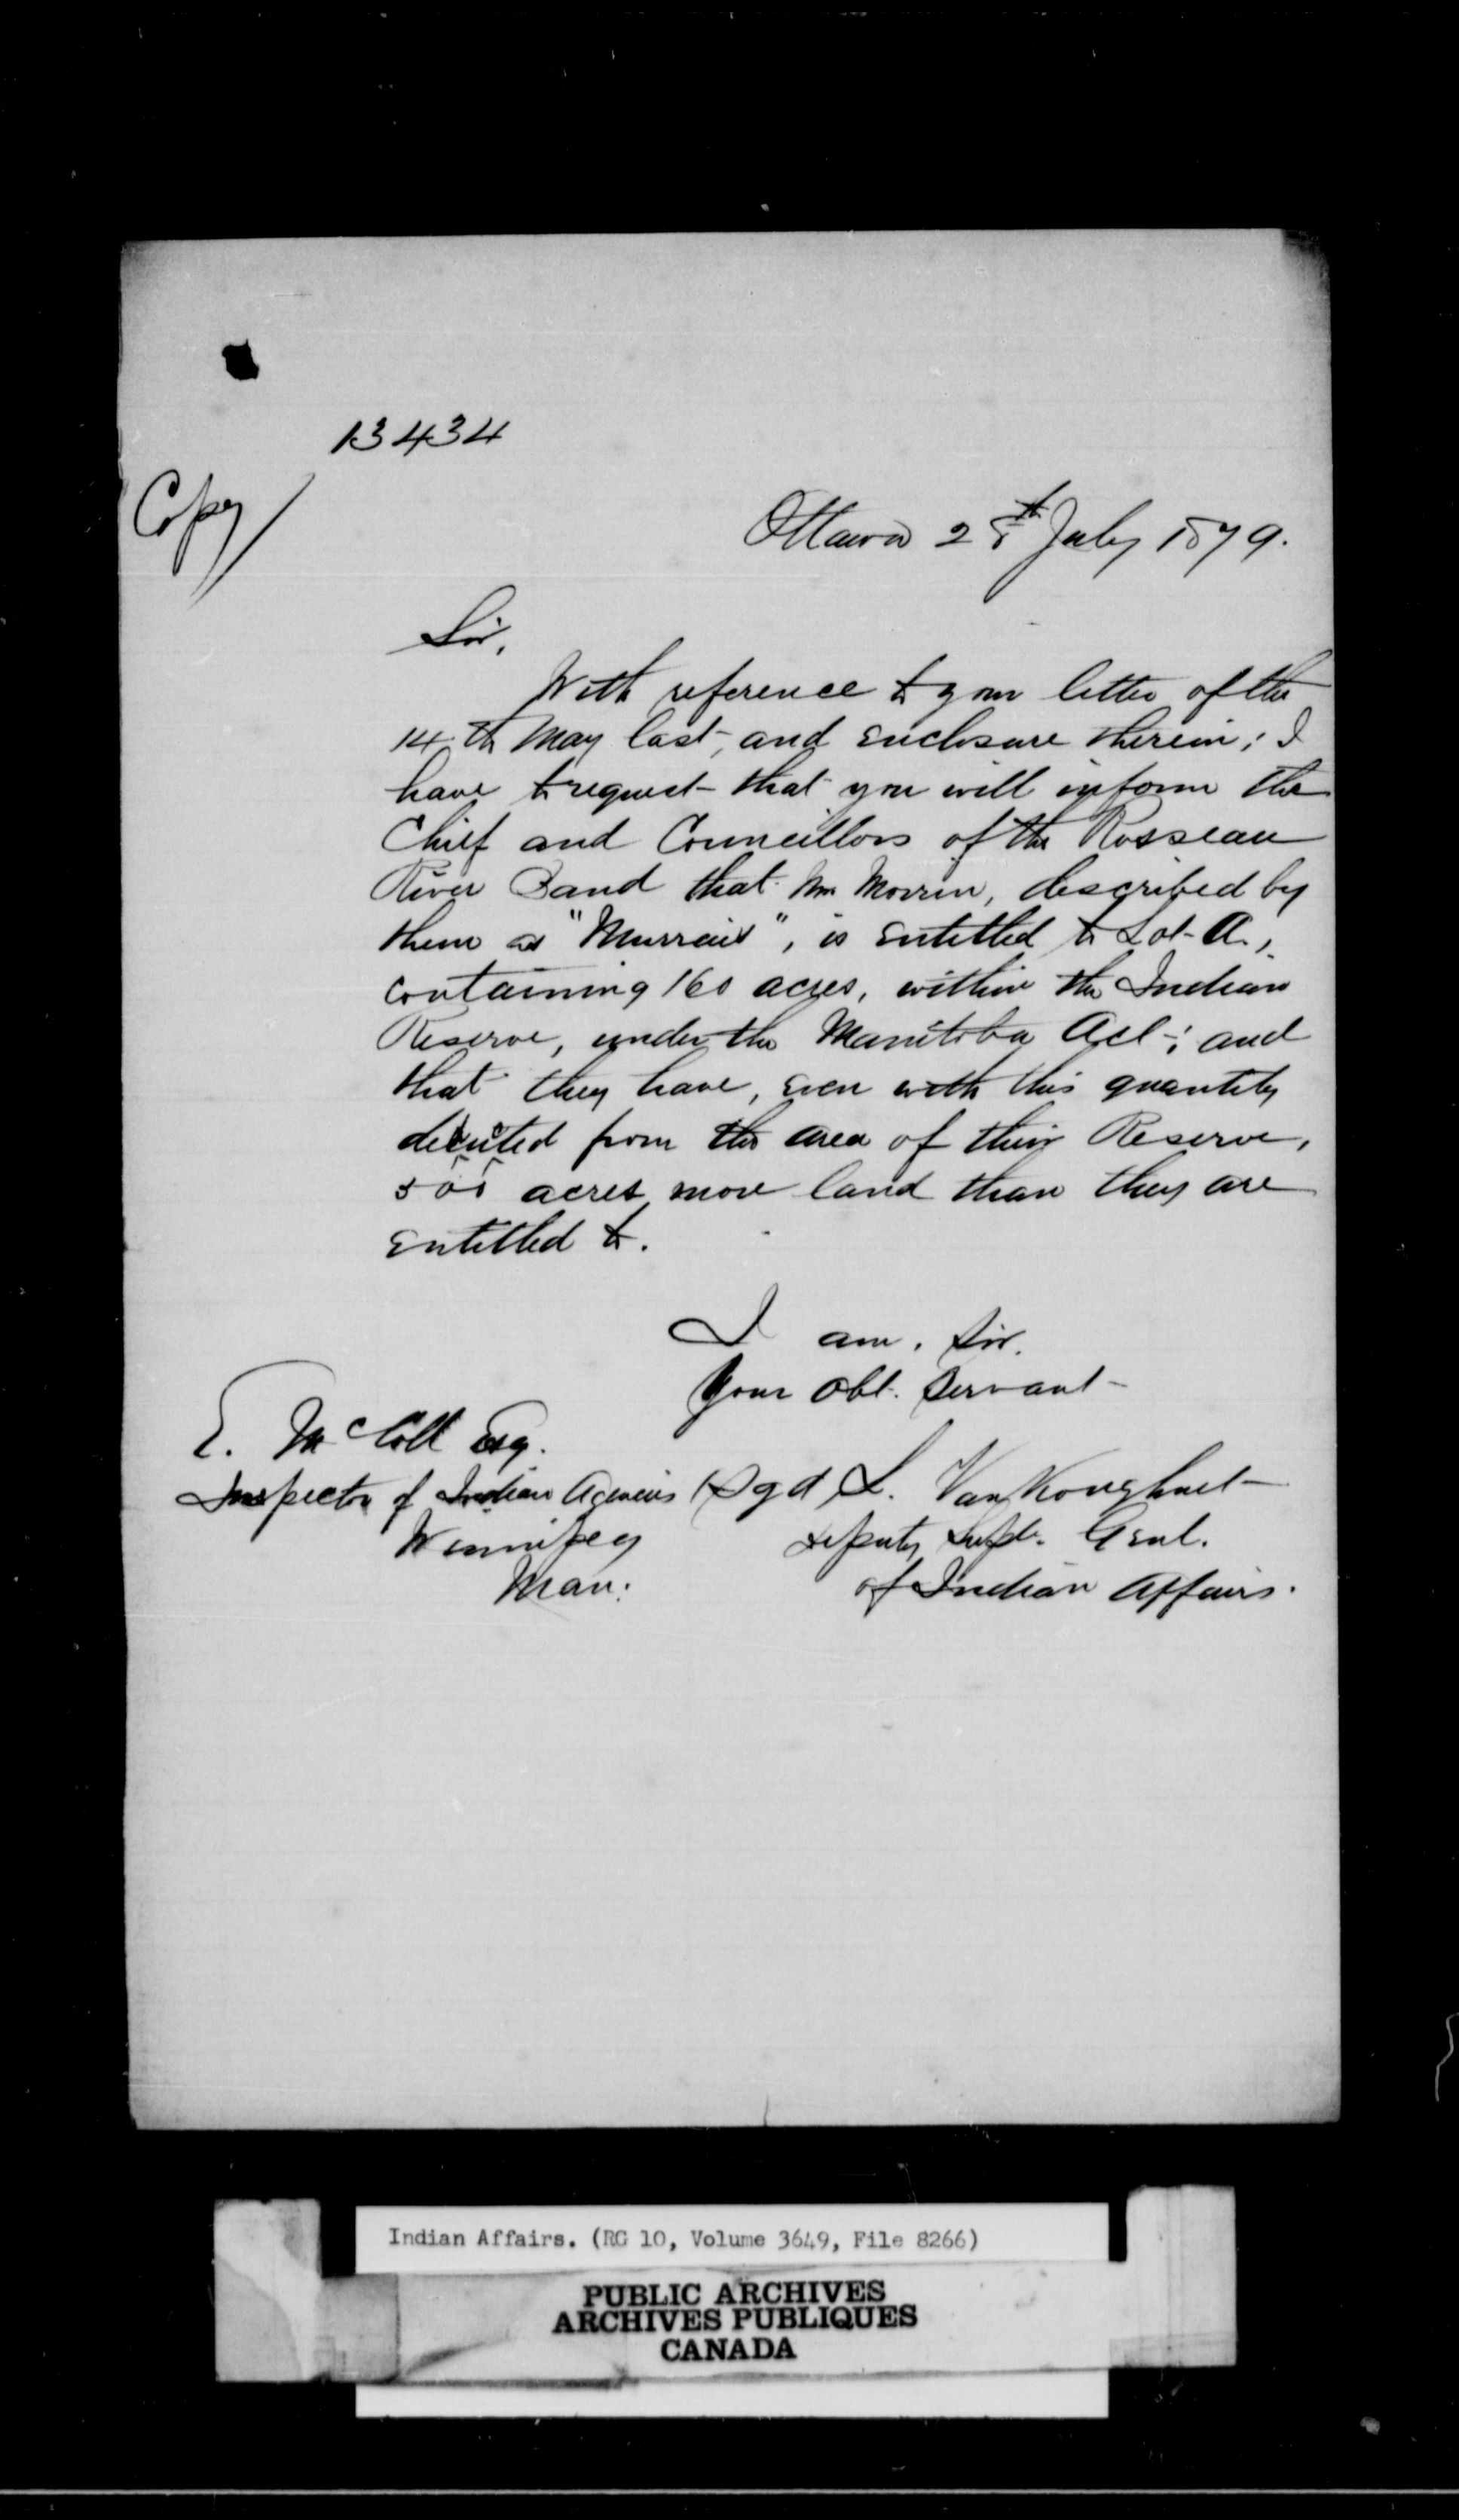 13434
Copy
Ottawa 28th July 1879.
Sir,
With reference to your letter of the
14th May last, and enclosure therein; I
have to request that you will inform the
Chief and Councillors of the Rosseau
River Band that Wm Morrin, described by
them as "Murrain", is entitled to Lot A.,
containing 160 acres, within the Indian
Reserve, under the Manitoba Act; and
that they have, even with this quantity
deducted from the area of their Reserve,
500 acres more land than they are
entitled to.
I am, Sir,
Your Obt. Servant
E. McColl Esq.
Inspector of Indian Agencies (Sgd) L. VanKoughnet
Winnipeg Deputy Supt. Genl.
Man: of Indian Affairs.
Indian Affairs. (RG 10, Volume 3649, File 8266)
PUBLIC ARCHIVES
ARCHIVES PUBLIQUES
CANADA